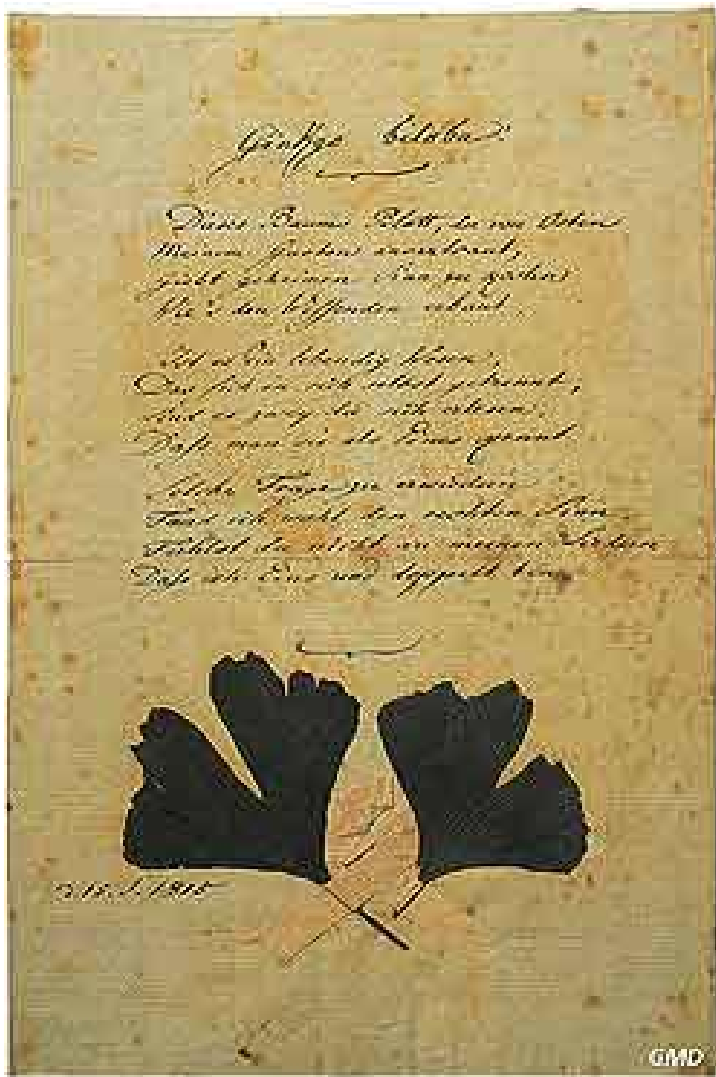 Ginkgo biloba.
Dieses Baums Blatt, der von Osten
Meinem Garten anvertraut,
Giebt geheimen Sinn zu kosten
Wie's den Wissenden erbaut.
Ist es Ein lebendig Wesen,
Das sich in sich selbst getrennt,
Sind es zwey die sich erlesen,
Dass man sie als Eines kennt.
Solche Frage zu erwiedern
Fand ich wohl den rechten Sinn
Fühlst du nicht an meinen Liedern
Dass ich Eins und doppelt bin
1815
GMD